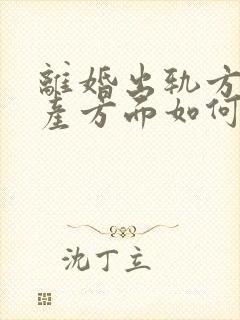 離婚出轨方
產方面如何
沈丁立